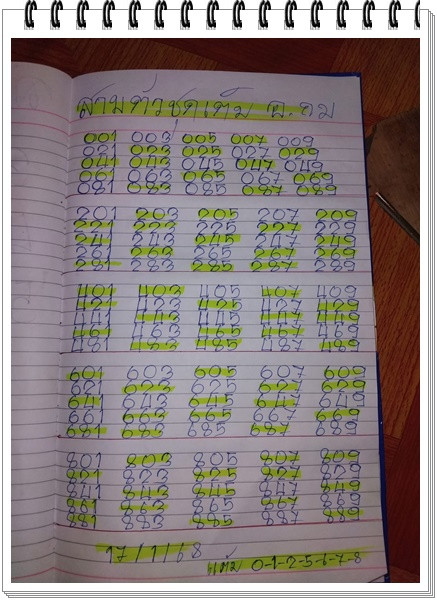 สามตัวชุดเต็ม อ.ถม
001 003 005 007 009
021 023 025 027 029
041 043 045 047 049
061 063 065 067 069
081 083 085 087 089
201 203 205 207 209
221 223 225 227 229
241 243 245 247 249
261 263 265 267 269
281 283 285 287 289
401 403 405 407 409
421 423 425 427 429
441 443 445 447 449
461 463 465 467 469
481 483 485 487 489
601 603 605 607 609
621 623 625 627 629
641 643 645 647 649
661 663 665 667 669
681 683 685 687 689
801 803 805 807 809
821 823 825 827 829
841 843 845 847 849
861 863 865 867 869
881 883 885 887 889
17/1/68
แต้ม 0-1-2-5-6-7-8